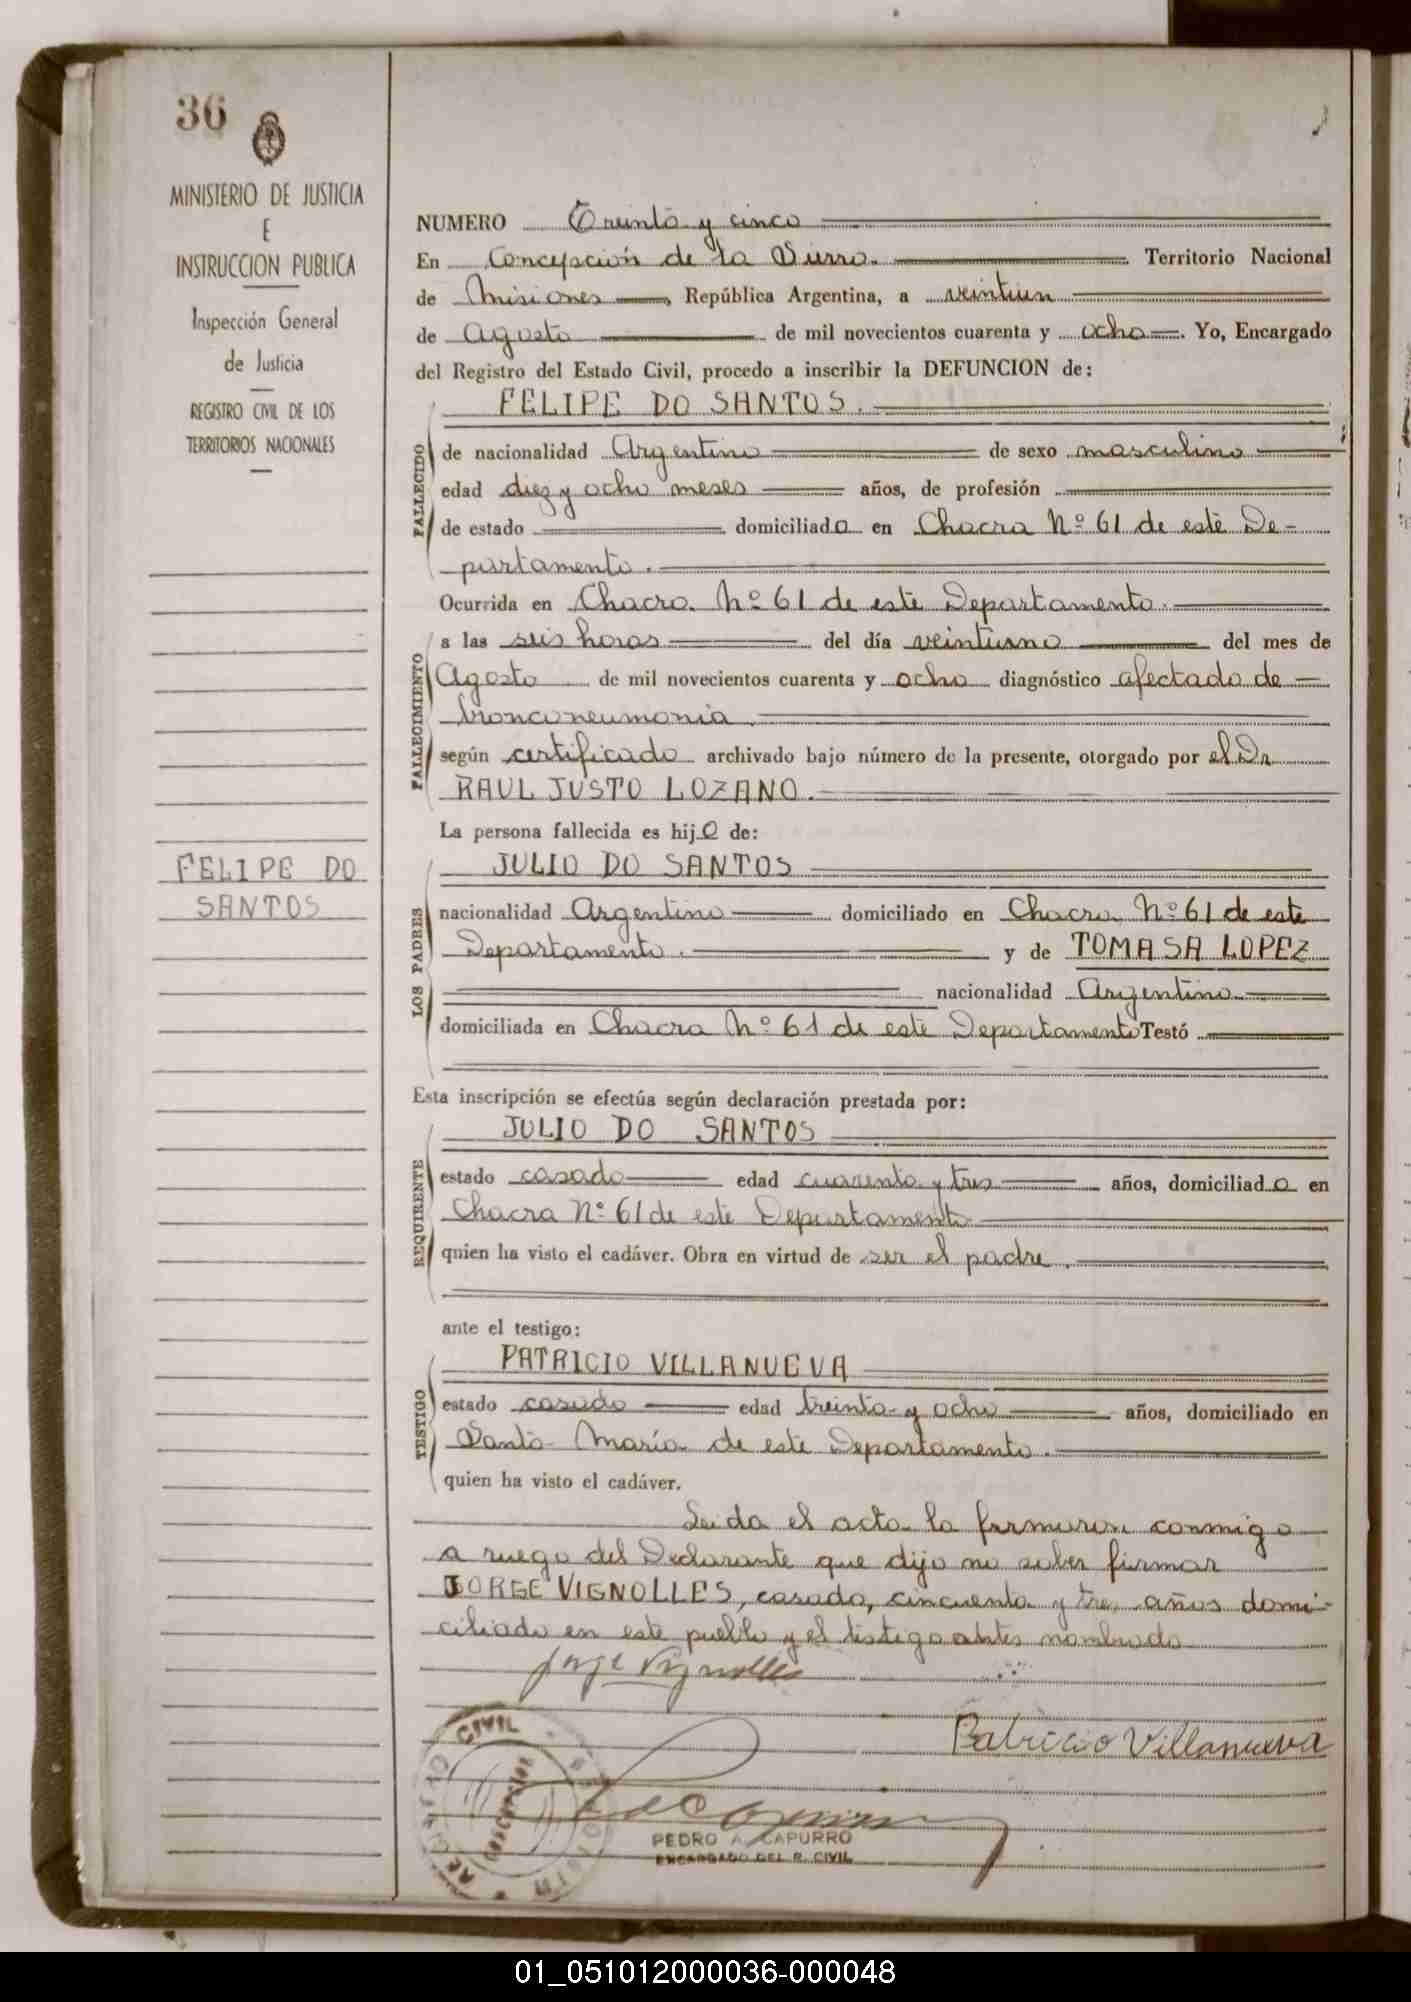 36
MINISTERIO DE JUSTICIA
E
INSTRUCCION PUBLICA
Inspección General
de Justicia
REGISTRO CIVIL DE LOS
TERRITORIOS NACIONALES
FELIPE DO
SANTOS
NUMERO Treinta y cinco
En Concepción de la Sierra. Territorio Nacional
de Misiones, República Argentina, a veintiun
de Agosto de mil novecientos cuarenta y ocho. Yo, Encargado
del Registro del Estado Civil, procedo a inscribir la DEFUNCION de:
FELIPE DO SANTOS.
FALLECIDO
de nacionalidad Argentino de sexo masculino
edad diez y ocho meses años, de profesión
de estado domiciliado en Chacra Nº 61 de este De-
partamento.
Ocurrida en Chacra Nº 61 de este Departamento.
FALLECIMIENTO
a las seis horas del día veintiuno del mes de
Agosto de mil novecientos cuarenta y ocho diagnóstico afectado de
bronconeumonia
según certificado archivado bajo número de la presente, otorgado por el Dr
RAUL JUSTO LOZANO.
La persona fallecida es hijo de:
LOS PADRES
JULIO DO SANTOS
nacionalidad Argentino domiciliado en Chacra Nº 61 de este
Departamento. y de TOMASA LOPEZ
nacionalidad Argentina
domiciliada en Chacra Nº 61 de este Departamento Testó
Esta inscripción se efectúa según declaración prestada por:
REQUIRENTE
JULIO DO SANTOS
estado casado edad cuarenta y tres años, domiciliado en
Chacra Nº 61 de este Departamento
quien ha visto el cadáver. Obra en virtud de ser el padre.
ante el testigo:
TESTIGO
PATRICIO VILLANUEVA
estado casado edad treinta y ocho años, domiciliado en
Santa María de este Departamento.
quien ha visto el cadáver.
Leida el acta la firmaron conmigo
a ruego del Declarante que dijo no saber firmar
JORGE VIGNOLLES, casado, cincuenta y tres años domi-
ciliado en este pueblo y el testigo antes nombrado
Jorge Vignolles
Patricio Villanueva
REGISTRO CIVIL
CONCEPCION
PEDRO A. CAPURRO
ENCARGADO DEL R. CIVIL
01_051012000036-000048